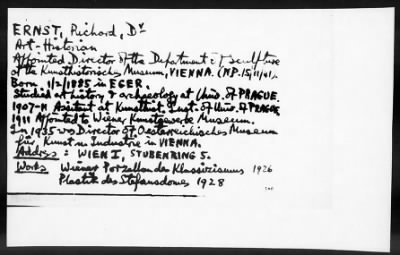 ERNST, Richard, Dr
Art-Historian
Appointed Director of the Department of sculpture
of the Kunsthistorisches Museum, VIENNA. (N.P. 15/11/41).
Born: 1/2/1885 in EGER.
Studied art history & archaeology at Univ. of PRAGUE.
1907-11 Assistent at Kunsthist. Inst. of Univ. of PRAGUE
1911 Affointed to Wiener Kunstgewerbe Museum.
In 1935 was Director of Oesterreichisches Museum
für Kunst u. Industrie in VIENNA.
Address: WIEN I, STUBENRING 5.
Works Wiener Porzellan des Klassizismus 1926
Plastik des Stefansdomes 1928